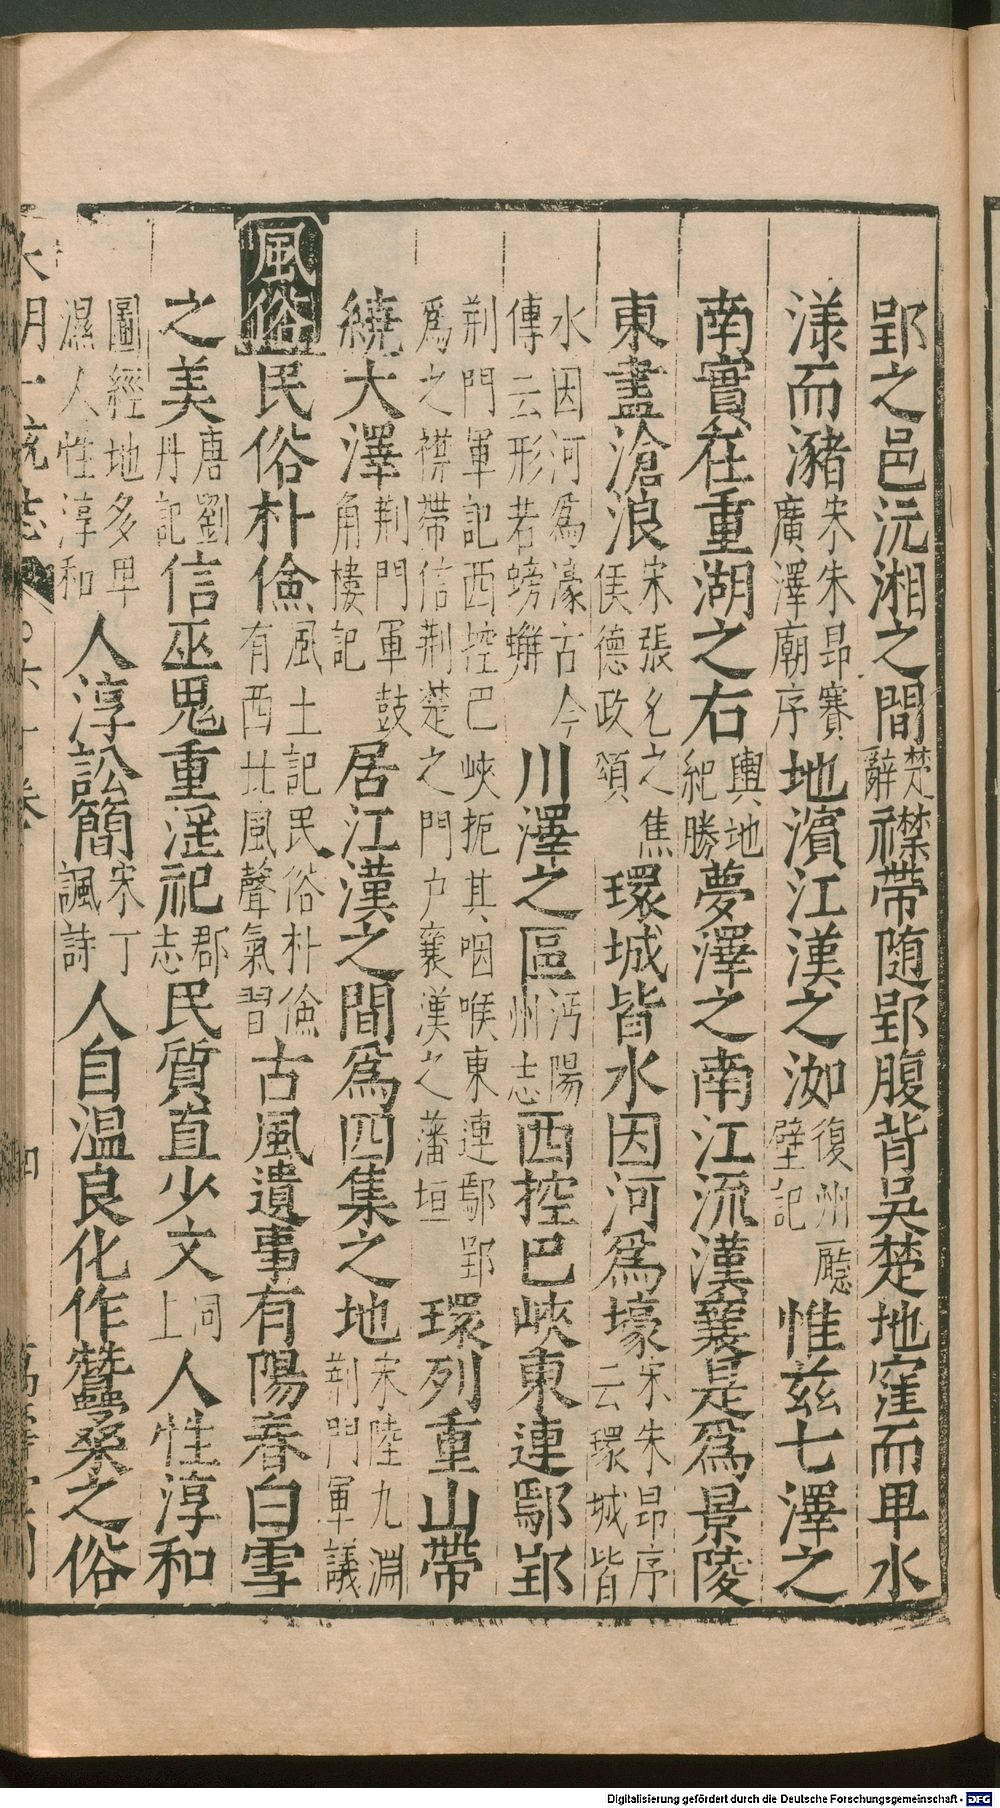 郢之邑沅湘之間楚辭襟帶随郢腹背吳楚地窪而卑水
漾而瀦宋朱昂賽廣澤廟序地濱江漢之洳復州廳壁記惟茲七澤之
南實在重湖之右輿地紀勝夢澤之南江流漢襄是爲景陵
東盡滄浪宋張乂之焦侯德政頌環城皆水因河爲壕宋朱昂序云環城皆
水因河爲濠古今傳云形若螃蠏川澤之區沔陽州志西控巴峽東連鄢郢
荆門軍記西控巴峽扼其咽喉東連鄢郢爲之襟帶信荆楚之門户襄漢之藩垣環列重山帶
繞大澤荆門軍鼓角樓記居江漢之間爲四集之地宋陸九淵荆門軍議
風俗民俗朴儉風土記民俗朴儉有西北風聲氣習古風遺事有陽春白雪
之美唐劉丹記信巫鬼重淫祀郡志民質直少文同上人性淳和
圖經地多卑濕人性淳和人淳訟簡宋丁諷詩人自温良化作蠶桑之俗
大明一統志 六十卷
四
Digitalisierung gefördert durch die Deutsche Forschungsgemeinschaft - DFG